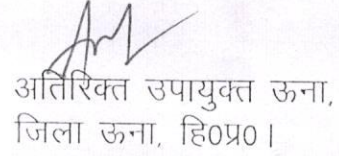 अतिरिक्त उपायुक्त ऊना,
जिला ऊना, हि०प्र०।